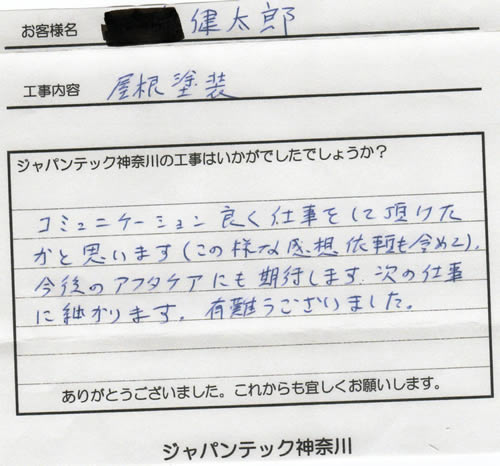 お客様名 健太郎
工事内容 屋根塗装
ジャパンテック神奈川の工事はいかがでしたでしょうか?
コミュニケーション良く仕事をして頂けた
かと思います(この様な感想依頼も含めて)。
今後のアフタケアにも期待します。次の仕事
に継かります。有難うございました。
ありがとうございました。これからも宜しくお願いします。
ジャパンテック神奈川